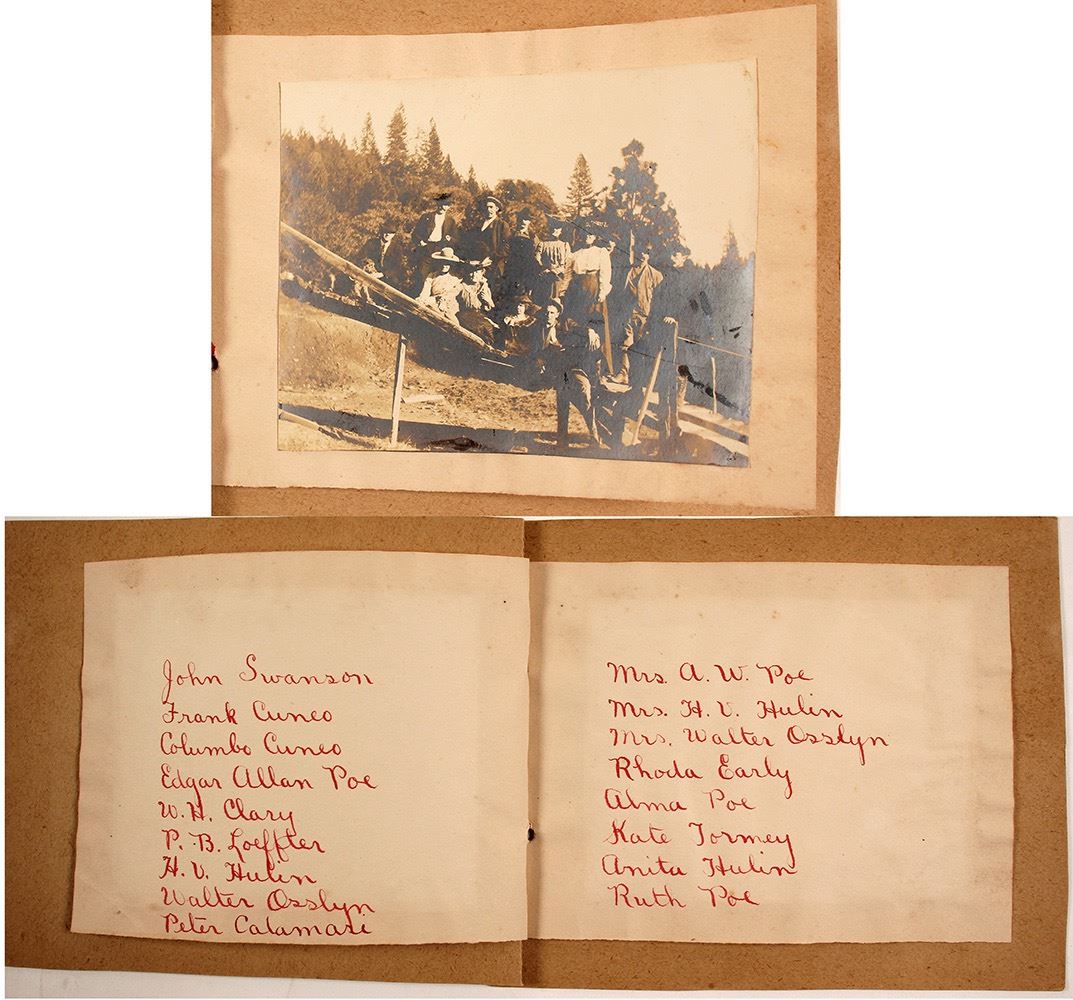 John Swanson
Frank Cuneo
Columbo Cuneo
Edgar Allan Poe
W. H. Clary
P. B. Loeffler
H. V. Hulin
Walter Osslyn
Peter Calamari
Mrs. A. W. Poe
Mrs. H. V. Hulin
Mrs. Walter Osslyn
Rhoda Early
Alma Poe
Kate Tormey
Anita Hulin
Ruth Poe